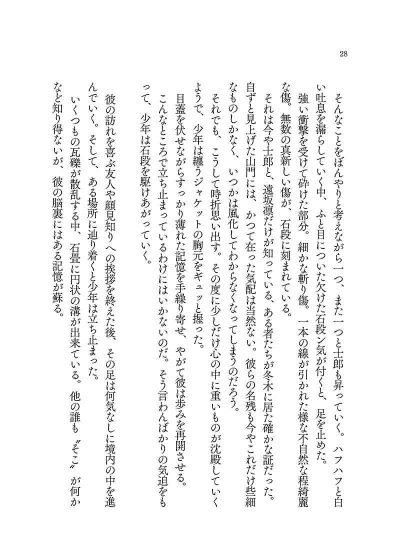 28
そんなことをぼんやりと考えながら一つ、また一つと士郎も昇っていく。ハフハフと白
い吐息を漏らしていく中、ふと目についた欠けた石段に気が付くと、足を止めた。
強い衝撃を受けて砕けた部分。細かな斬り傷。一本の線が引かれた様な不自然な程綺麗
な傷。無数の真新しい傷が、石段に刻まれている。
それは今や士郎と、遠坂凛だけが知っている、ある者たちが冬木に居た確かな証だった。
自ずと見上げた山門には、かつて在った気配は当然ない。彼らの名残も今やこれだけ些細
なものしかなく、いつかは風化してわからなくなってしまうのだろう。
それでも、こうして時折思い出す。その度に少しだけ心の中に重いものが沈殿していく
ようで、少年は纏うジャケットの胸元をギュッと握った。
目蓋を伏せながらすっかり薄れた記憶を手繰り寄せ、やがて彼は歩みを再開させる。
こんなところで立ち止まっているわけにはいかないのだ。そう言わんばかりの気迫をも
って、少年は石段を駆けあがっていく。
彼の訪れを喜ぶ友人や顔見知りへの挨拶を終えた後、その足は何気なしに境内の中を進
んでいく。そして、ある場所に辿り着くと少年は立ち止まった。
いくつもの瓦礫が散乱する中、石畳に円状の溝が出来ている。他の誰も〝そこ〟が何か
など知り得ないが、彼の脳裏にはある記憶が蘇る。